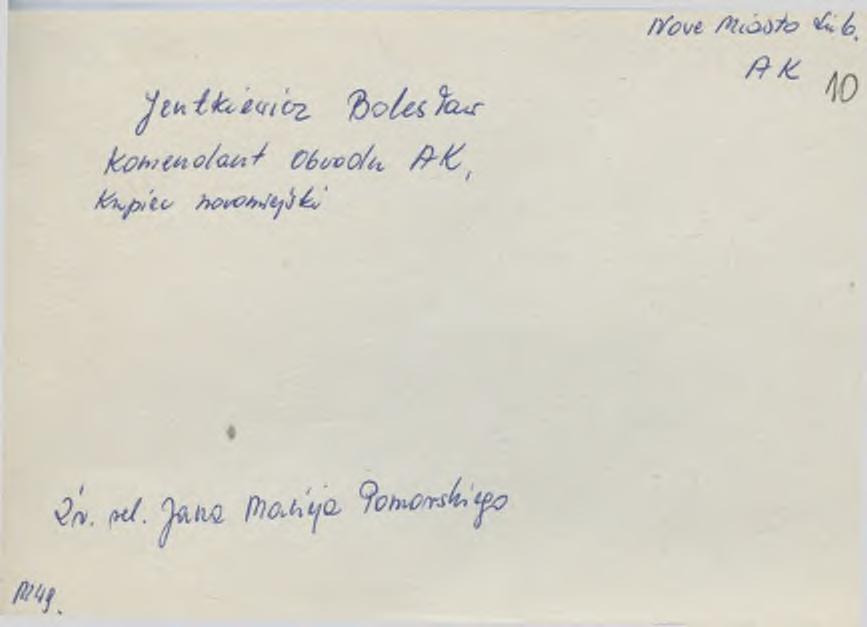 Nowe Miasto Lub.
AK
10
Jentkiewicz Bolesław
Komendant Obwodu AK,
Kupiec nowomiejski
Źr. rel. Jana Macieja Pomorskiego